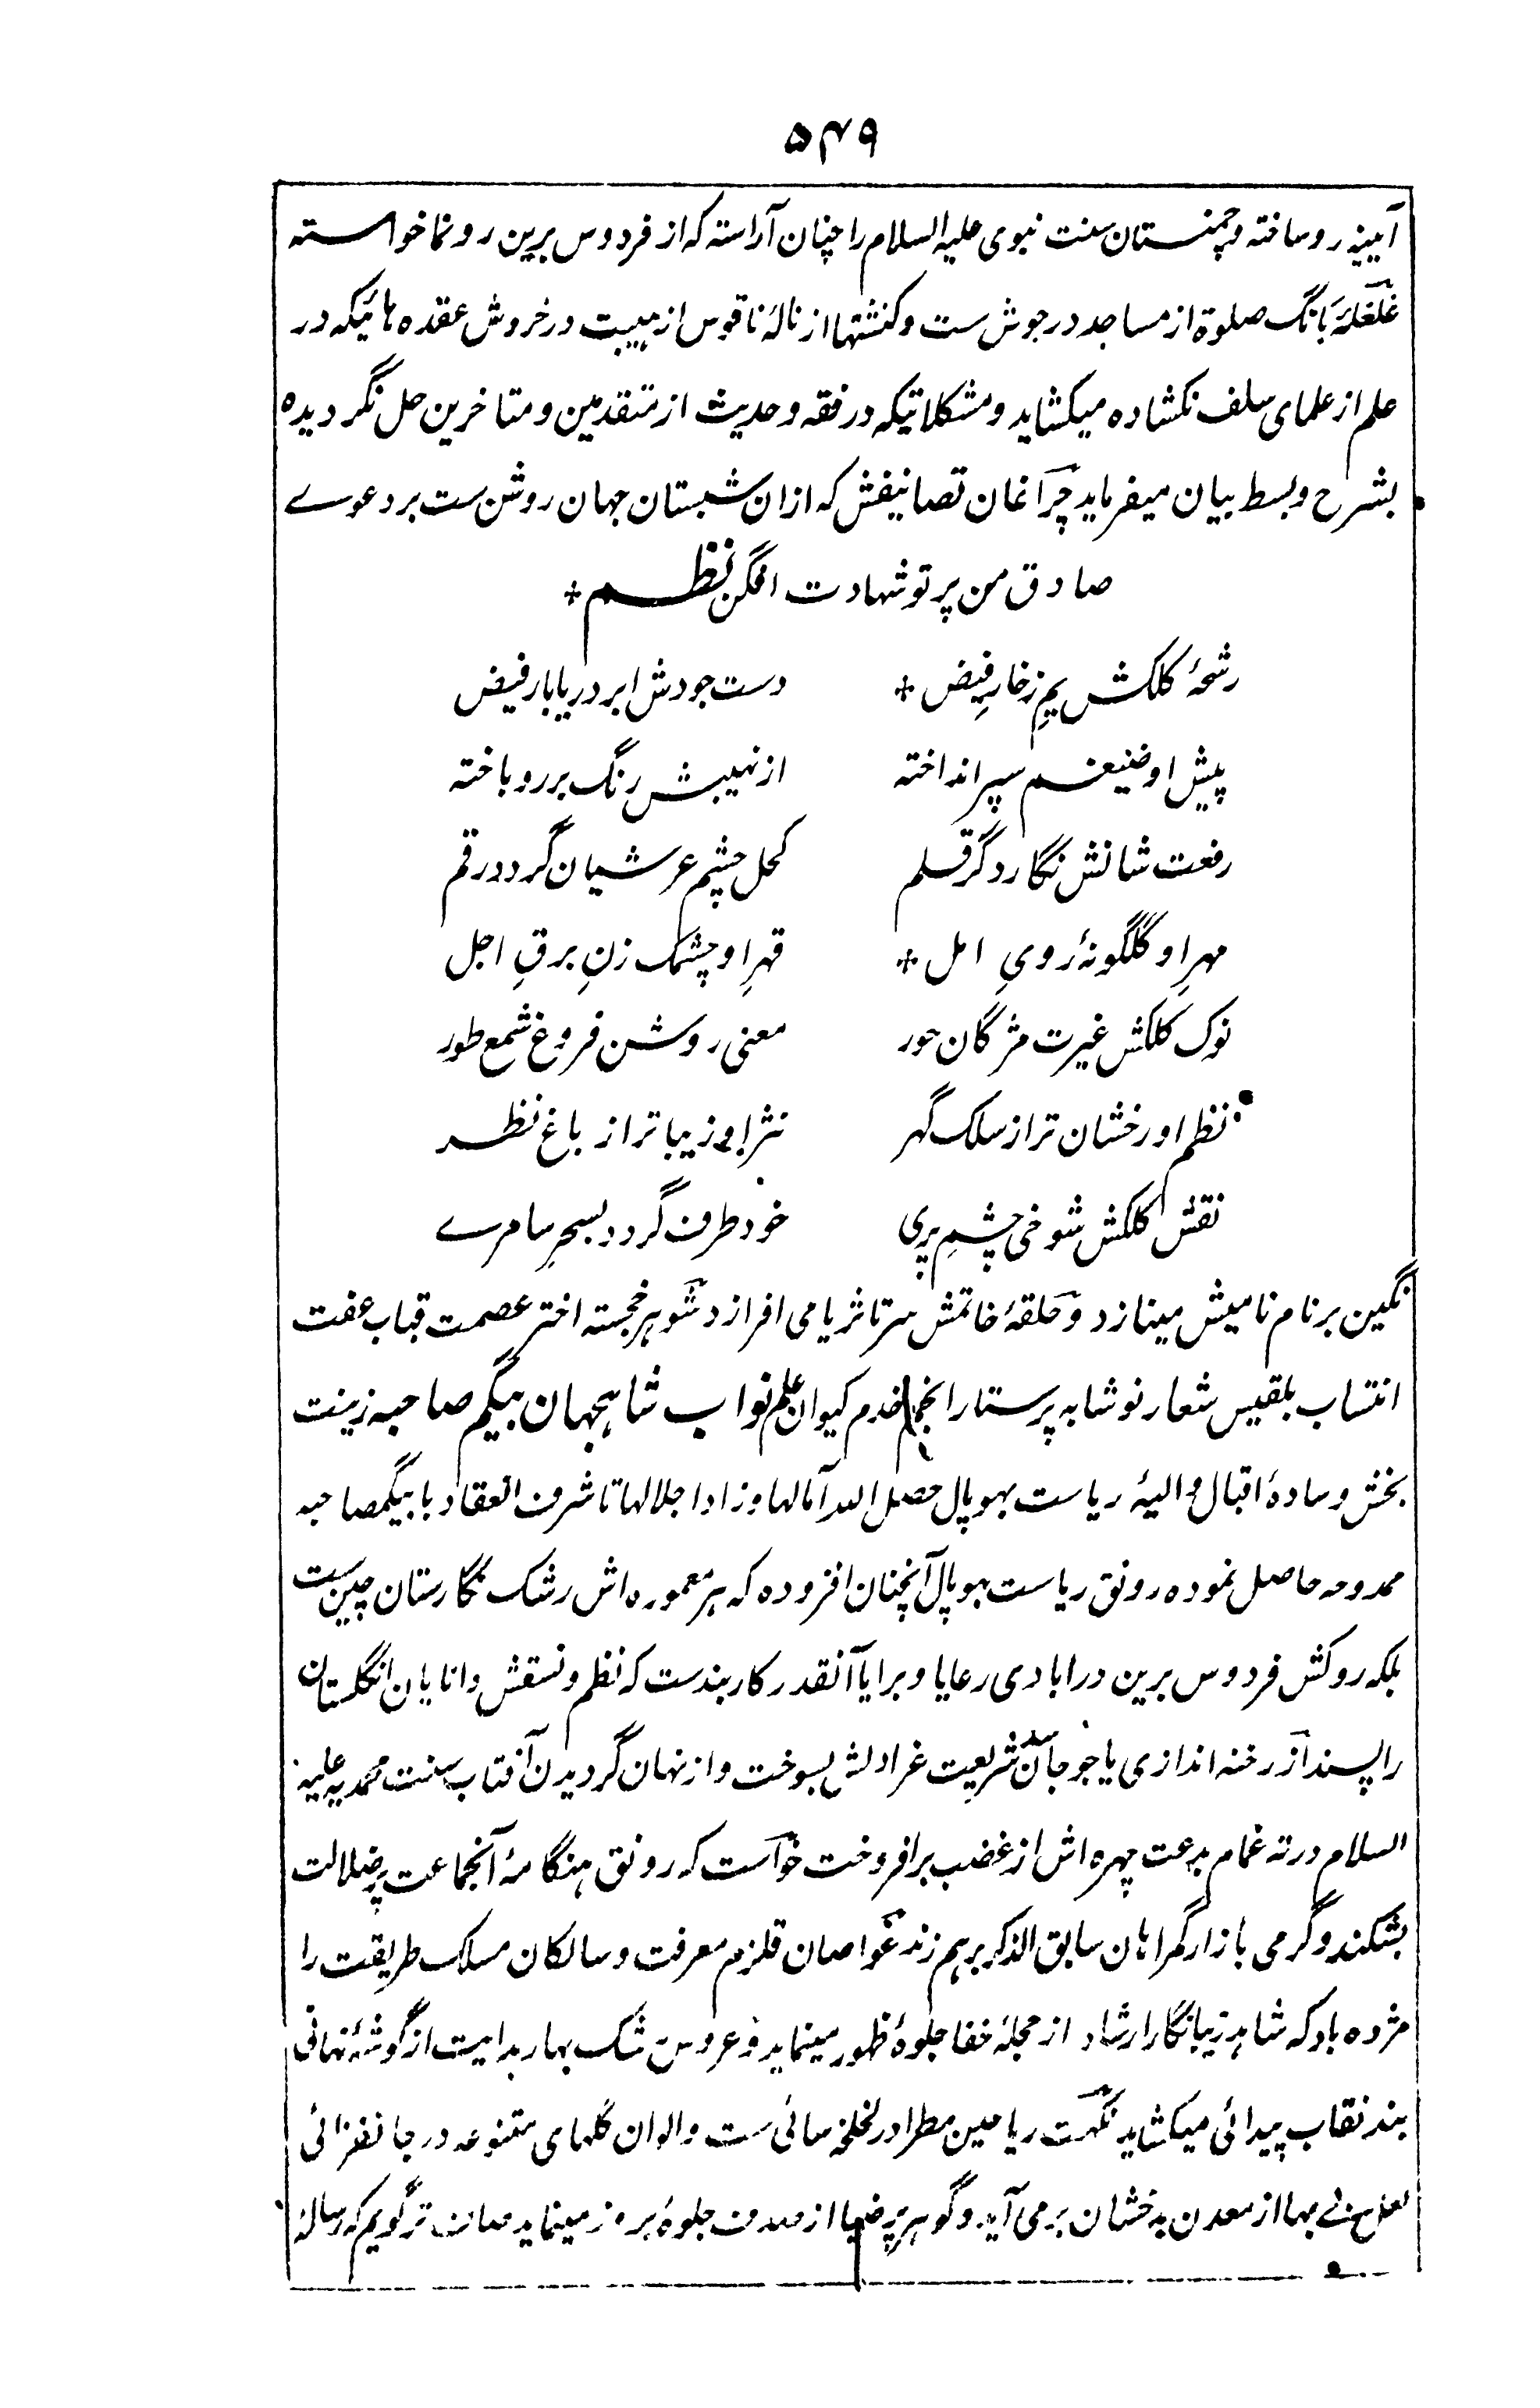 ۵۴۹
آیینہ رو ساختہ و چمنستان سنت نبوی علیہ السلام را چنان آراستہ کہ از فردوس برین رونما خواستہ
غلغلۂ بانگ صلوة از مساجد در جوش ست و کنشتها از نالۂ ناقوس از ہیبت در خروش عقدہ ہائیکہ در
علم از علمای سلف نکشادہ میکشاید و مشکلاتیکہ در فقہ و حدیث از متقدمین و متاخرین حل نگردیدہ
بشرح و بسط بیان میفرماید چراغان تصانیفش کہ ازان شبستان جہان روشن ست بر دعوے
صادق من پرتو شہادت افگن نظم +
رشحۂ کلکش یمِ زخارِ فیض + دست جودش ابر دریا بار فیض
پیش او ضیغم سپر انداختہ از نہیبش رنگ بر رو باختہ
رفعت شانش نگارد گر قلم کحل چشم عرشیان گردد رقم
مہرِ او گلگونۂ رویِ امل + قہرِ او چشمک زنِ برقِ اجل
نوک کلکش غیرت مژگان حور معنی روشن فروغ شمع طور
نظم او رخشان تر از سلک گہر نثر او زیبا تر از باغ نظر
نقش کلکش شوخی چشمِ پری خود طرف گردد بسحرِ سامرے
نگین بر نام نامیش مینازد و حلقۂ خاتمش سر تا ثریا می افرازد شوہر خجستہ اختر عصمت قباب عفت
انتساب بلقیس شعار نوشابہ پرستار انجم خدم کیوان علم نواب شاہجہان بیگم صاحبہ زینت
بخش وسادۂ اقبال والیۂ ریاست بہوپال حصل اللہ آمالہا وزاد اجلالہا تا شرف انعقاد با بیگمصاحبہ
ممدوحہ حاصل نمودہ رونق ریاست بہوپال آنچنان افزودہ کہ ہر معمورہ اش رشک نگارستان چین ست
بلکہ روکش فردوس برین در ابادی رعایا و برایا آنقدر کاربندست کہ نظم و نسقش دانایان انگلستان
را پسند از رخنہ اندازی یاجوجان سد شریعت غرا دلش بسوخت و از نہان گردیدن آفتاب سنت محمدیہ علیہ
السلام در تہ غمام بدعت چہرہ اش از غضب برافروخت خواست کہ رونق ہنگامۂ آنجماعت پر ضلالت
بشکند و گرمی بازار گمراہان سابق الذکر برہم زند غواصان قلزم معرفت و سالکان مسلک طریقت را
مژدہ باد کہ شاہد زیبا نگار ارشاد از مجلۂ خفا جلوۂ ظہور مینماید و عروس رشک بہار ہدایت از گوشۂ نہانی
بند نقاب پیدائی میکشاید نگہت ریاحین مطرا در لخلخہ سائی ست و الوان گلہای متنوعہ در جانفزائی
بہا از معدن بدخشان برمی آید و گوہر پر ضیا از صدف جلوۂ بروز مینماید صاف تر گویم کہ رسالۂ